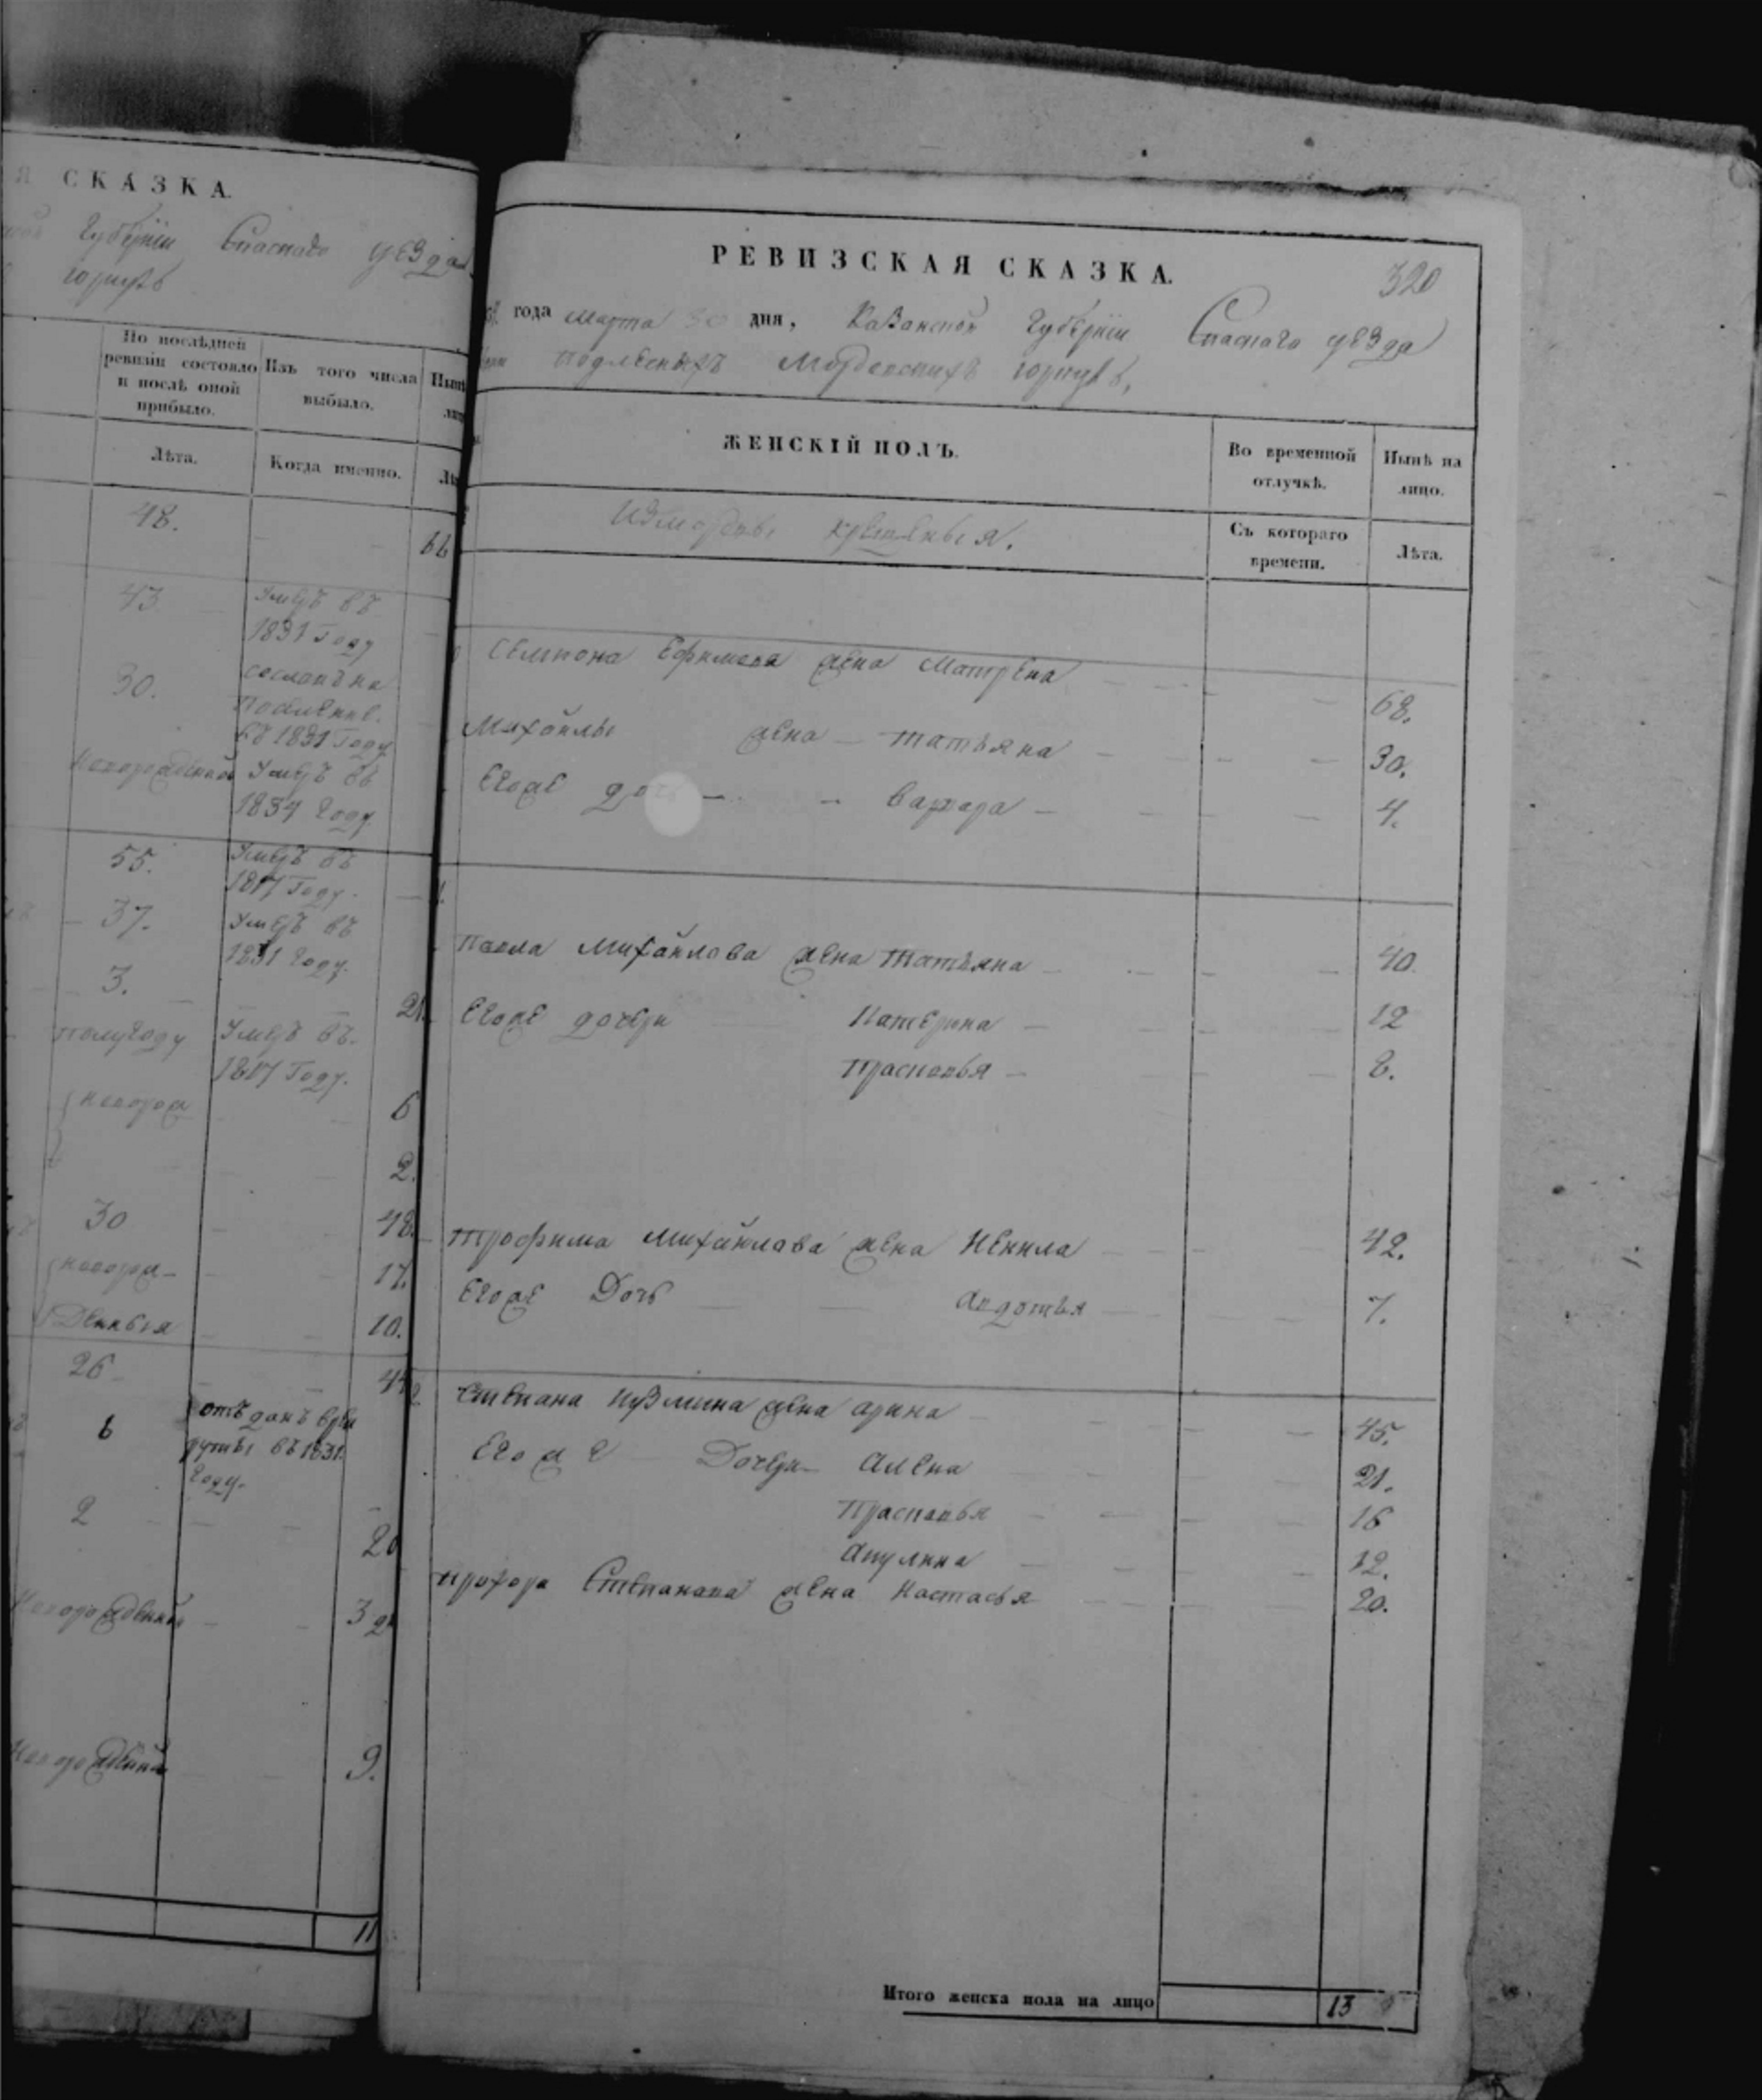 СКАЗКА.
Губернiи Спаскаго уѣзда
юрткѣ
По послѣдней
ревизiи состояло
и послѣ оной
прибыло.
Изъ того числа
выбыло.
Лѣта.
Когда именно.
48.
43
Умеръ въ
1831 году
30.
сосланъ на
въ 1831 году
Умеръ въ
1834 году
55.
Умеръ въ
1817 году.
37.
Умеръ въ
1831 году.
3.
21.
полугоду
Умеръ въ.
1817 году.
новорож
6
2.
30
48.
новорож
17.
денныя
10.
26
44
6
отъданъ врек
руты въ 1831.
году.
2
20
Новорожденный
3
Новорожденный
9.
11
РЕВИЗСКАЯ СКАЗКА.
320
года марта 30 дня, Казанской Губернiи Спаскаго уезда
подлесныхъ Мордовскихъ юрткъ,
ЖЕНСКIЙ ПОЛЪ.
Во временной
отлучкѣ.
Нынѣ на
лицо.
Измордвы крещеныя.
Съ котораго
времени.
Лѣта.
Семиона Ефимова жена Матрена 68.
Михайлы жена – татьяна 30.
Егоже дочь – Варвара – 4.
павла Михайлова жена татьяна 40.
Егоже дочери Катерина – 12
прасковья – 8.
трофима михайлова жена Ненила 42.
Егоже Дочь авдотья 7.
степана кузмина жена арина 45.
Егоже Дочери алена 21.
прасковья 16
акулина 12.
прохора Степанова жена настасья 20.
Итого женска пола на лицо 13